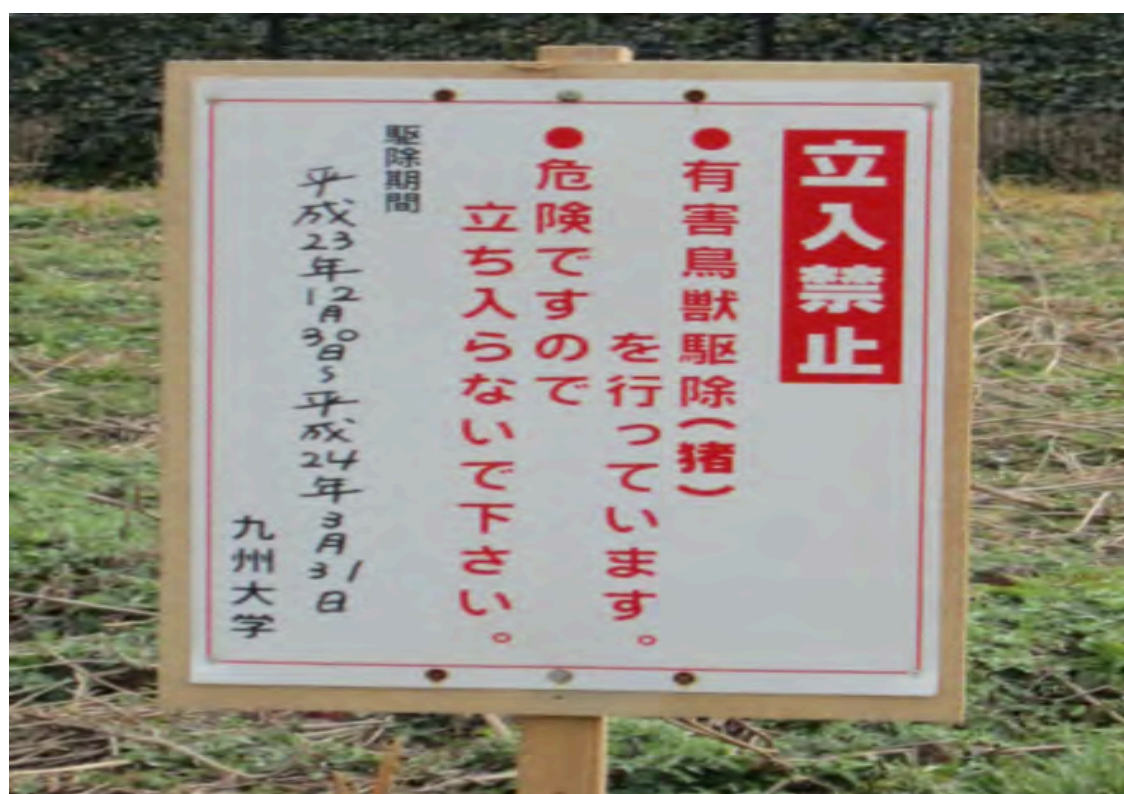 立入禁止
●有害鳥獣駆除(猪)
を行っています。
●危険ですので
立ち入らないで下さい。
駆除期間
平成23年12月30日~平成24年3月31日
九州大学